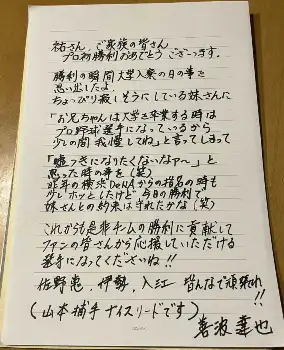 祐さん、ご家族の皆さん
プロ初勝利おめでとうございます。
勝利の瞬間大学入寮の日の事を
思い出したよ
ちょっぴり寂しそうにしている妹さんに
「お兄ちゃんは大学を卒業する時は
プロ野球選手になっているから
少しの間我慢してね」と言ってしまって
「嘘つきになりたくないなァ〜」と
思った時の事を(笑)
昨年の横浜DeNAからの指名の時も
少しホッとしたけど今日の勝利で
妹さんとの約束は守れたかな(笑)
これからも是非チームの勝利に貢献して
ファンの皆さんから応援していただける
選手になってくださいね!!
佐野恵、伊勢、入江 皆んなで頑張れ!!
(山本捕手ナイスリードです)
善波達也